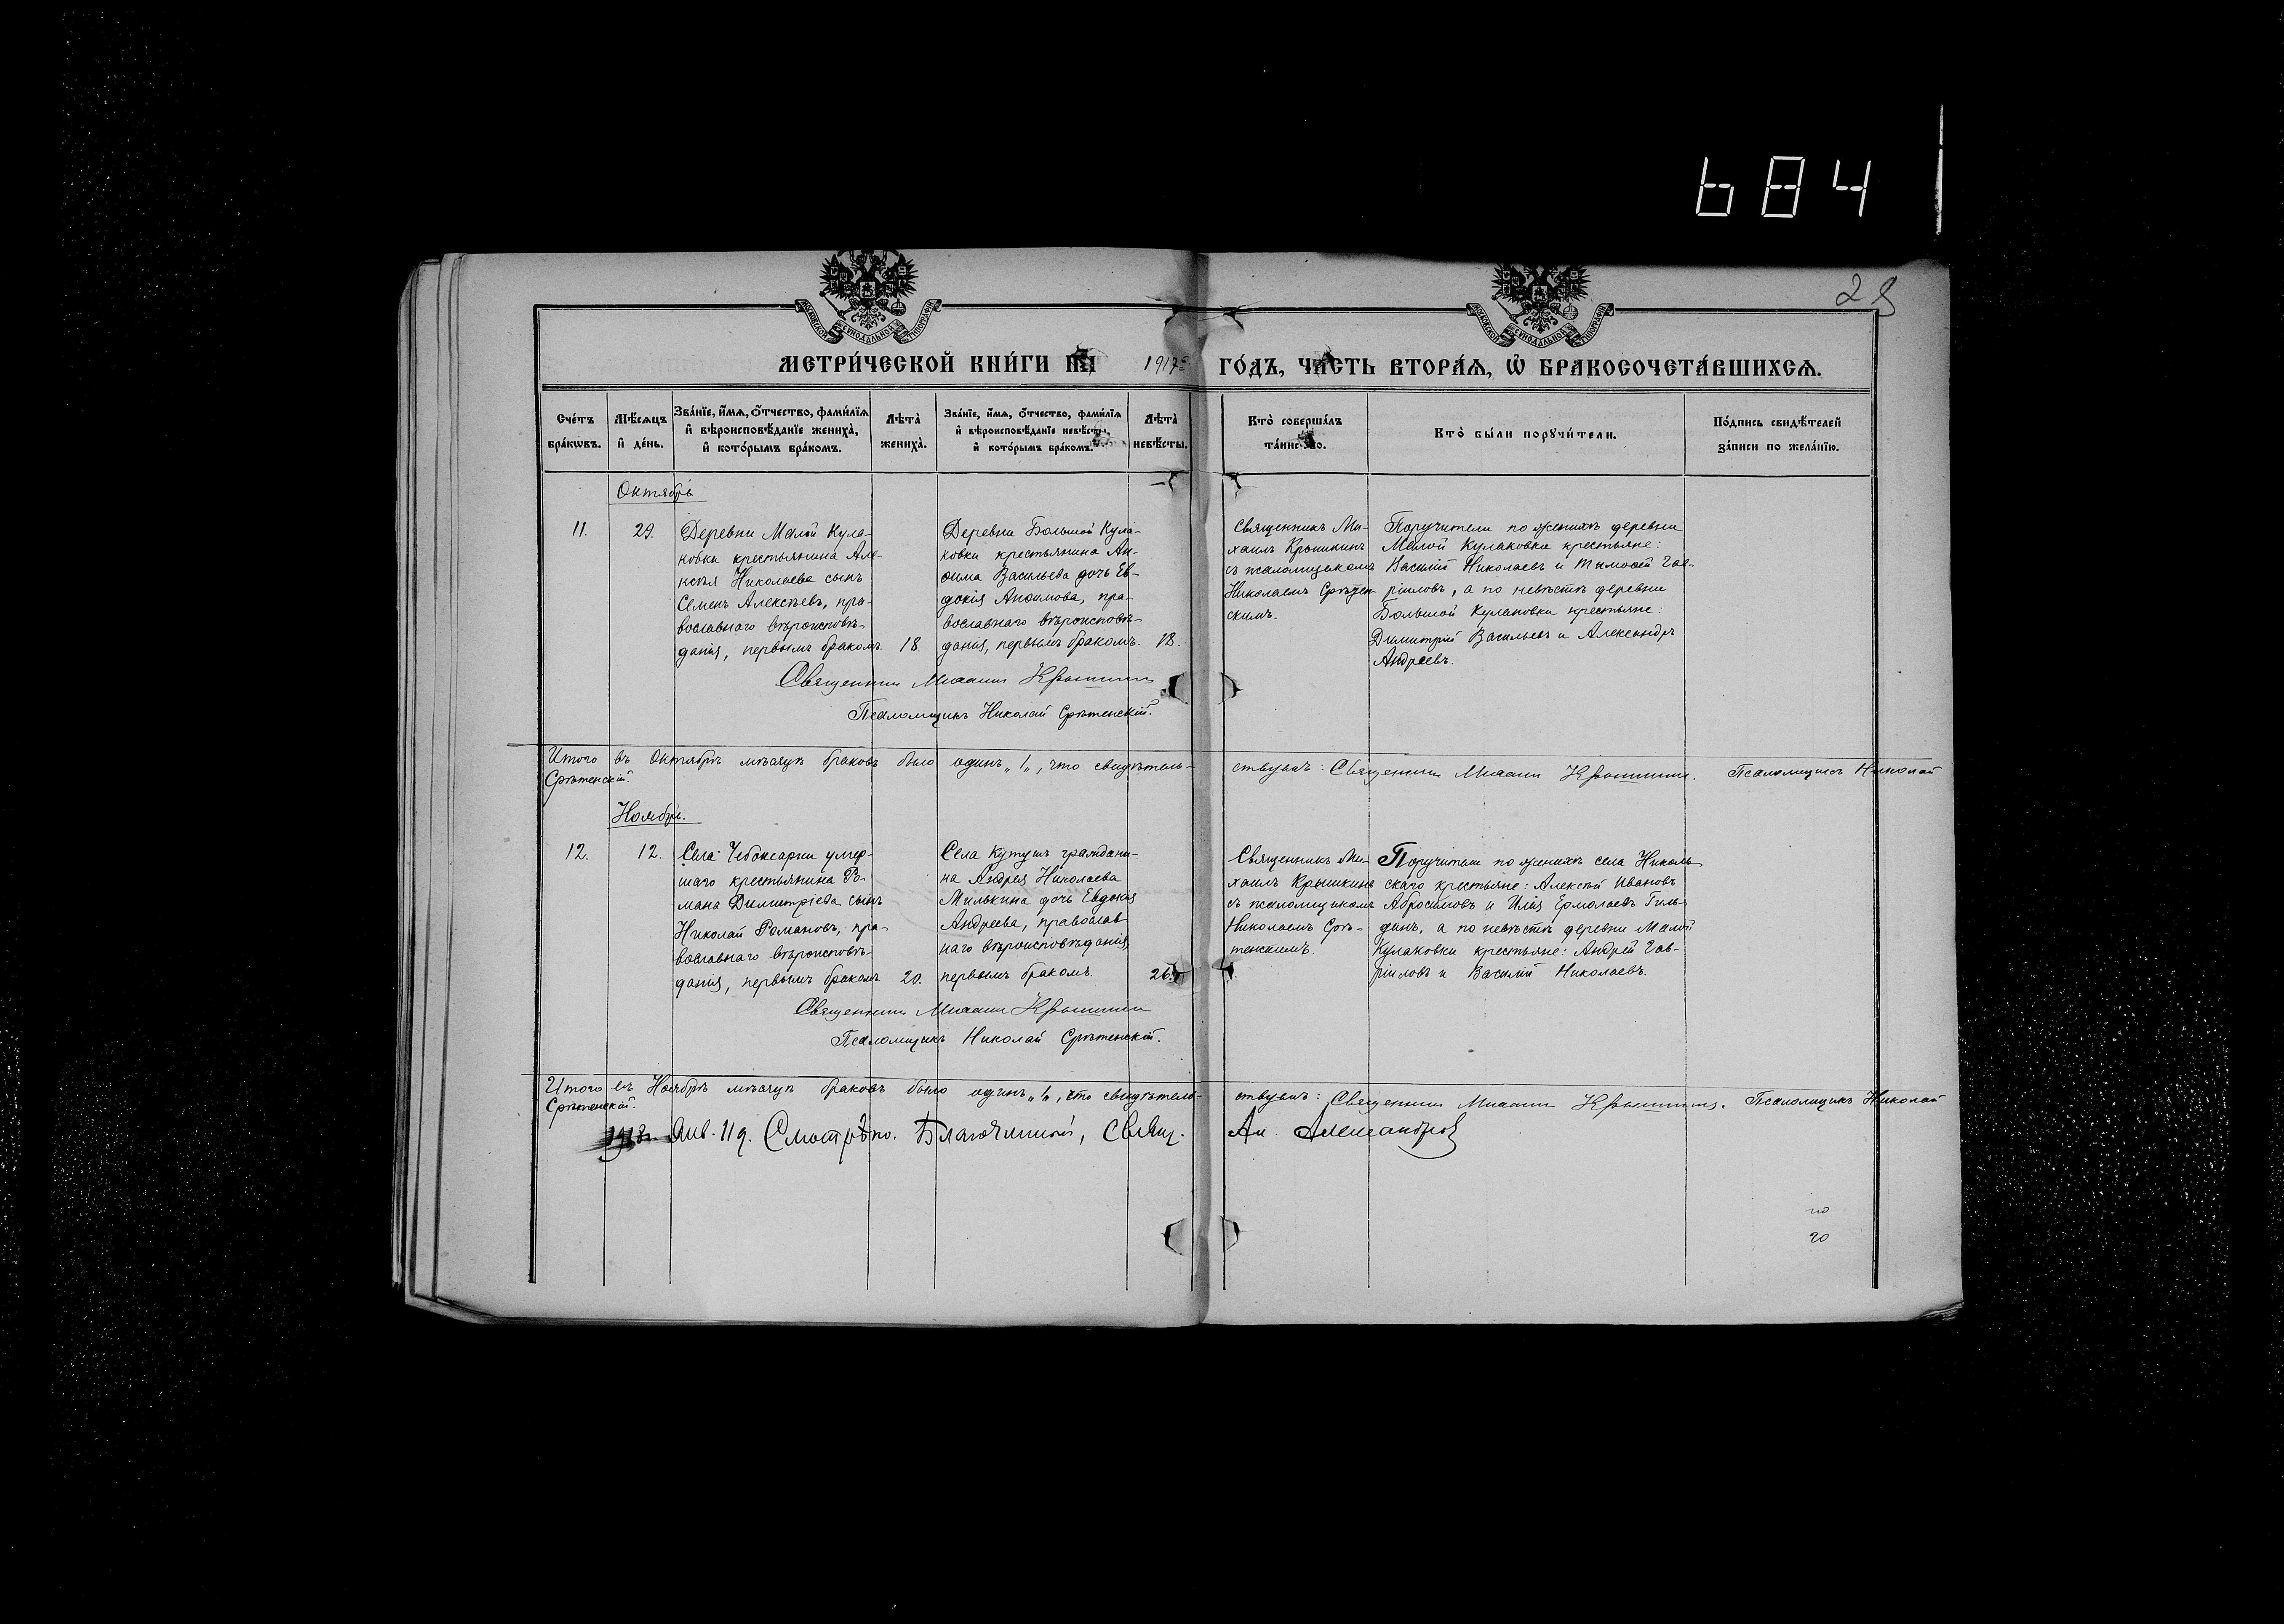 684
28
МОСКОВСКОЙ СѴНОДАЛЬНОЙ ТИПОГРАФІИ
МОСКОВСКОЙ СѴНОДАЛЬНОЙ ТИПОГРАФІИ
МЕТРИ́ЧЕСКОЙ КНИ́ГИ НА 1917й ГО́ДЪ, ЧА́СТЬ ВТОРА́Ѧ, Ѡ БРАКОСОЧЕТА́ВШИХСѦ.
Сче́тъ бра́кѡвъ.
Мѣ́сѧцъ и҆ де́нь.
Зва́нїе, и҆́мѧ, ѻ҆́тчество, фами́лїѧ и҆ вѣроисповѣ́данїе жениха̀, и҆ кото́рымъ бра́комъ.
Лѣ́та̀ жениха̀.
Зва́нїе, и҆́мѧ, ѻ҆́тчество, фами́лїѧ и҆ вѣроисповѣ́данїе невѣ́сты, и҆ кото́рымъ бра́комъ.
Лѣ́та̀ невѣ́сты.
Кто̀ соверша́лъ та́инство.
Кто̀ бы́ли порꙋчи́тели.
По́дпись свидѣ́телей за́писи по жела́нїю.
Октябрь
11.
29.
Деревни Малой Кула-
ковки крестьянина Але-
ксѣя Николаева сынъ
Семенъ Алексѣевъ, пра-
вославнаго вѣроисповѣ-
данія, первымъ бракомъ.
18.
Деревни Большой Кула-
ковки крестьянина Ан-
ѳима Васильева дочь Ев-
докія Анѳимова, пра-
вославнаго вѣроисповѣ-
данія, первымъ бракомъ.
18.
Священникъ Ми-
хаилъ Крышкинъ
съ псаломщикомъ
Николаемъ Срѣтен-
скимъ.
Поручители по женихѣ деревни
Малой Кулаковки крестьяне:
Василій Николаевъ и Тимоѳей Гав-
ріиловъ, а по невѣстѣ деревни
Большой Кулаковки крестьяне:
Димитрій Васильевъ и Александръ
Андреевъ.
Священникъ Михаилъ Крышкинъ
Псаломщикъ Николай Срѣтенскій.
Итого въ Октябрѣ мѣсяцѣ браковъ было одинъ „1„, что свидѣтель-ствуемъ: Священникъ Михаилъ Крышкинъ. Псаломщикъ Николай
Срѣтенскій.
Ноябрь.
12.
12.
Села Чебоксарки умер-
шаго крестьянина Ро-
мана Димитріева сынъ
Николай Романовъ, пра-
вославнаго вѣроисповѣ-
данія, первымъ бракомъ.
20.
Села Кутушъ граждани-
на Андрея Николаева
Милькина дочь Евдокія
Андреева, православ-
наго вѣроисповѣданія,
первымъ бракомъ.
26.
Священникъ Ми-
хаилъ Крышкинъ
съ псаломщикомъ
Николаемъ Срѣ-
тенскимъ.
Поручители по женихѣ села Николь-
скаго крестьяне: Алексѣй Ивановъ
Абросимовъ и Илія Ермолаевъ Гиль-
динъ, а по невѣстѣ деревни Малой
Кулаковки крестьяне: Андрей Гав-
ріиловъ и Василій Николаевъ.
Священникъ Михаилъ Крышкинъ
Псаломщикъ Николай Срѣтенскій.
Итого въ Ноябрѣ мѣсяцѣ браковъ было одинъ „1„, что свидѣтель-ствуемъ: Священникъ Михаилъ Крышкинъ. Псаломщикъ Николай
Срѣтенскій.
1918 Янв. 11 д. Смотрѣно. Благочинный, Свящ. Ал. Александров